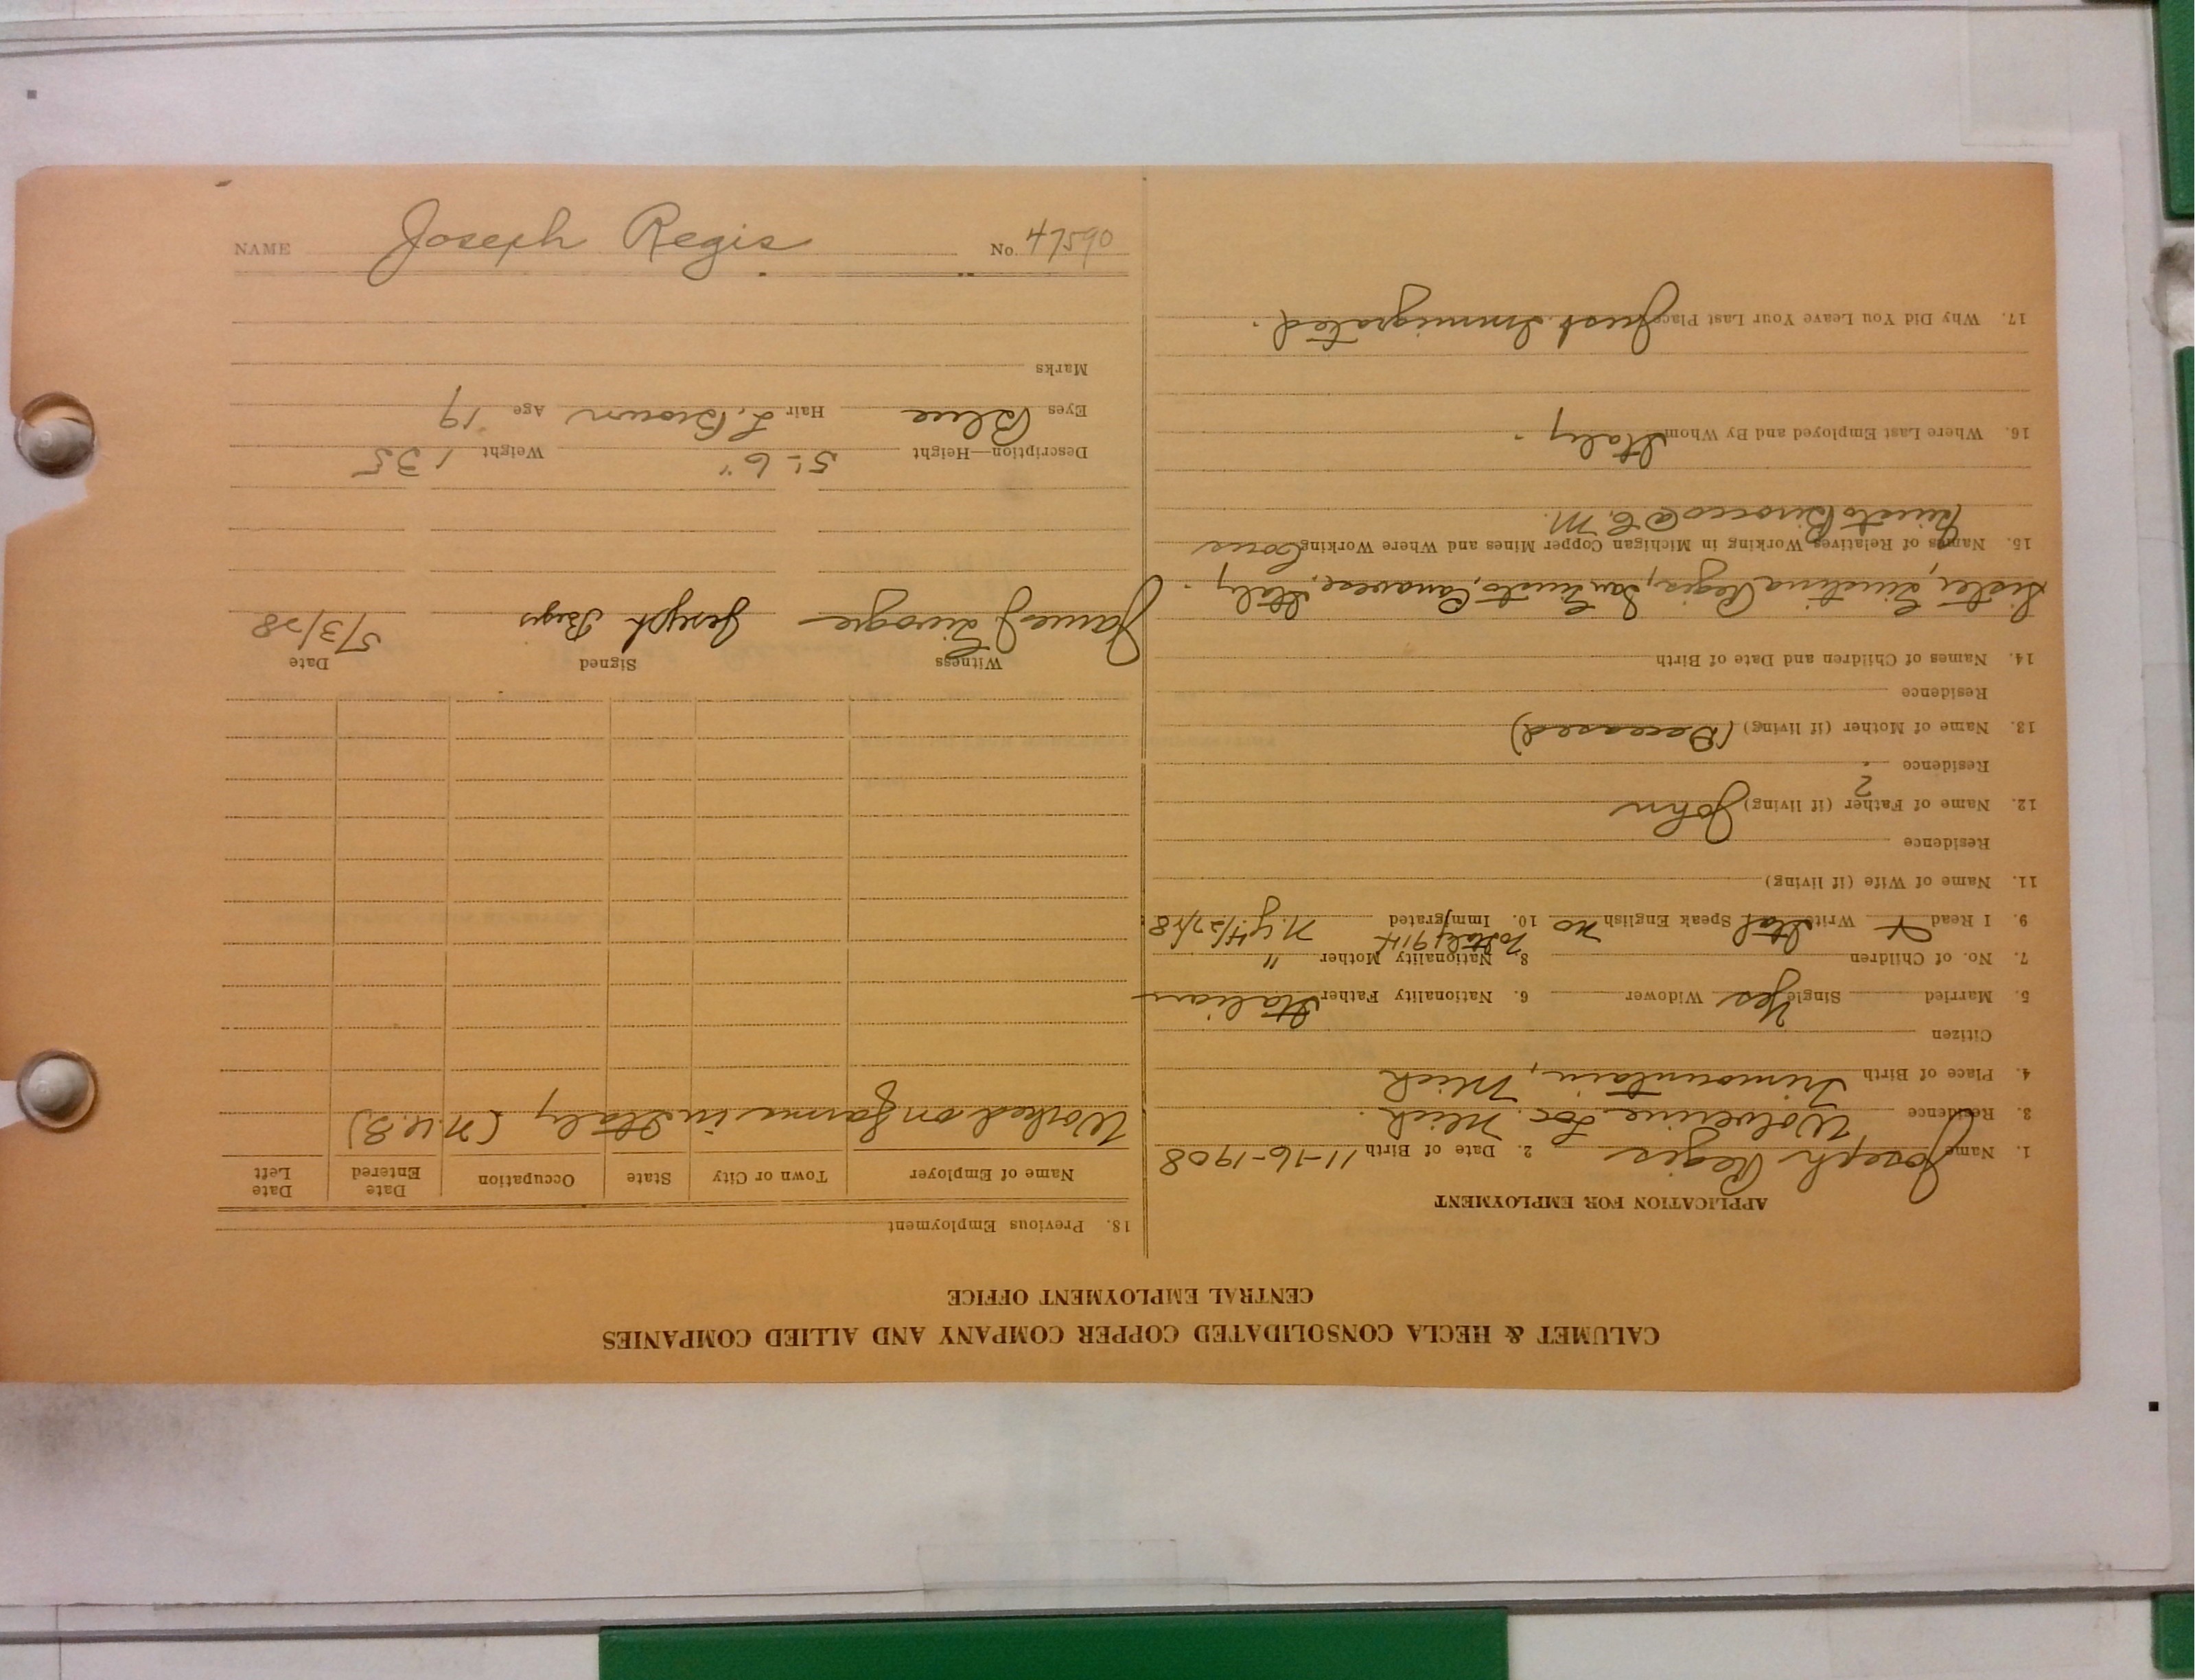 NAME Joseph Regis No. 47590
CALUMET & HECLA CONSOLIDATED COPPER COMPANY AND ALLIED COMPANIES
CENTRAL EMPLOYMENT OFFICE
APPLICATION FOR EMPLOYMENT
1. Name Joseph Regis 2. Date of Birth 11-16-1908
3. Residence Wolverine Loc. Mich.
4. Place of Birth Trimountain, Mich
Citizen
5. Married Single Yes Widower 6. Nationality Father Italian
7. No. of Children 8. Nationality Mother "
To Italy 1914
9. I Read X Write Ital Speak English no 10. Immigrated N.Y. 4/27/28.
11. Name of Wife (if living)
Residence
12. Name of Father (if living) John
Residence ?
13. Name of Mother (if living) (Deceased)
Residence
14. Names of Children and Date of Birth
Sister, Regis, San Canavese, Italy.
15. Names of Relatives Working in Michigan Copper Mines and Where Working Cous
@ C. M.
16. Where Last Employed and By Whom Italy.
17. Why Did You Leave Your Last Place Just Immigrated.
18. Previous Employment
Name of Employer Town or City State Occupation Date Entered Date Left
Worked on farms in Italy (N.U.S)
Witness Signed Date
James Joseph Regis 5/3/28
Description—Height 5'-6" Weight 135
Eyes Blue Hair L. Brown Age 19
Marks